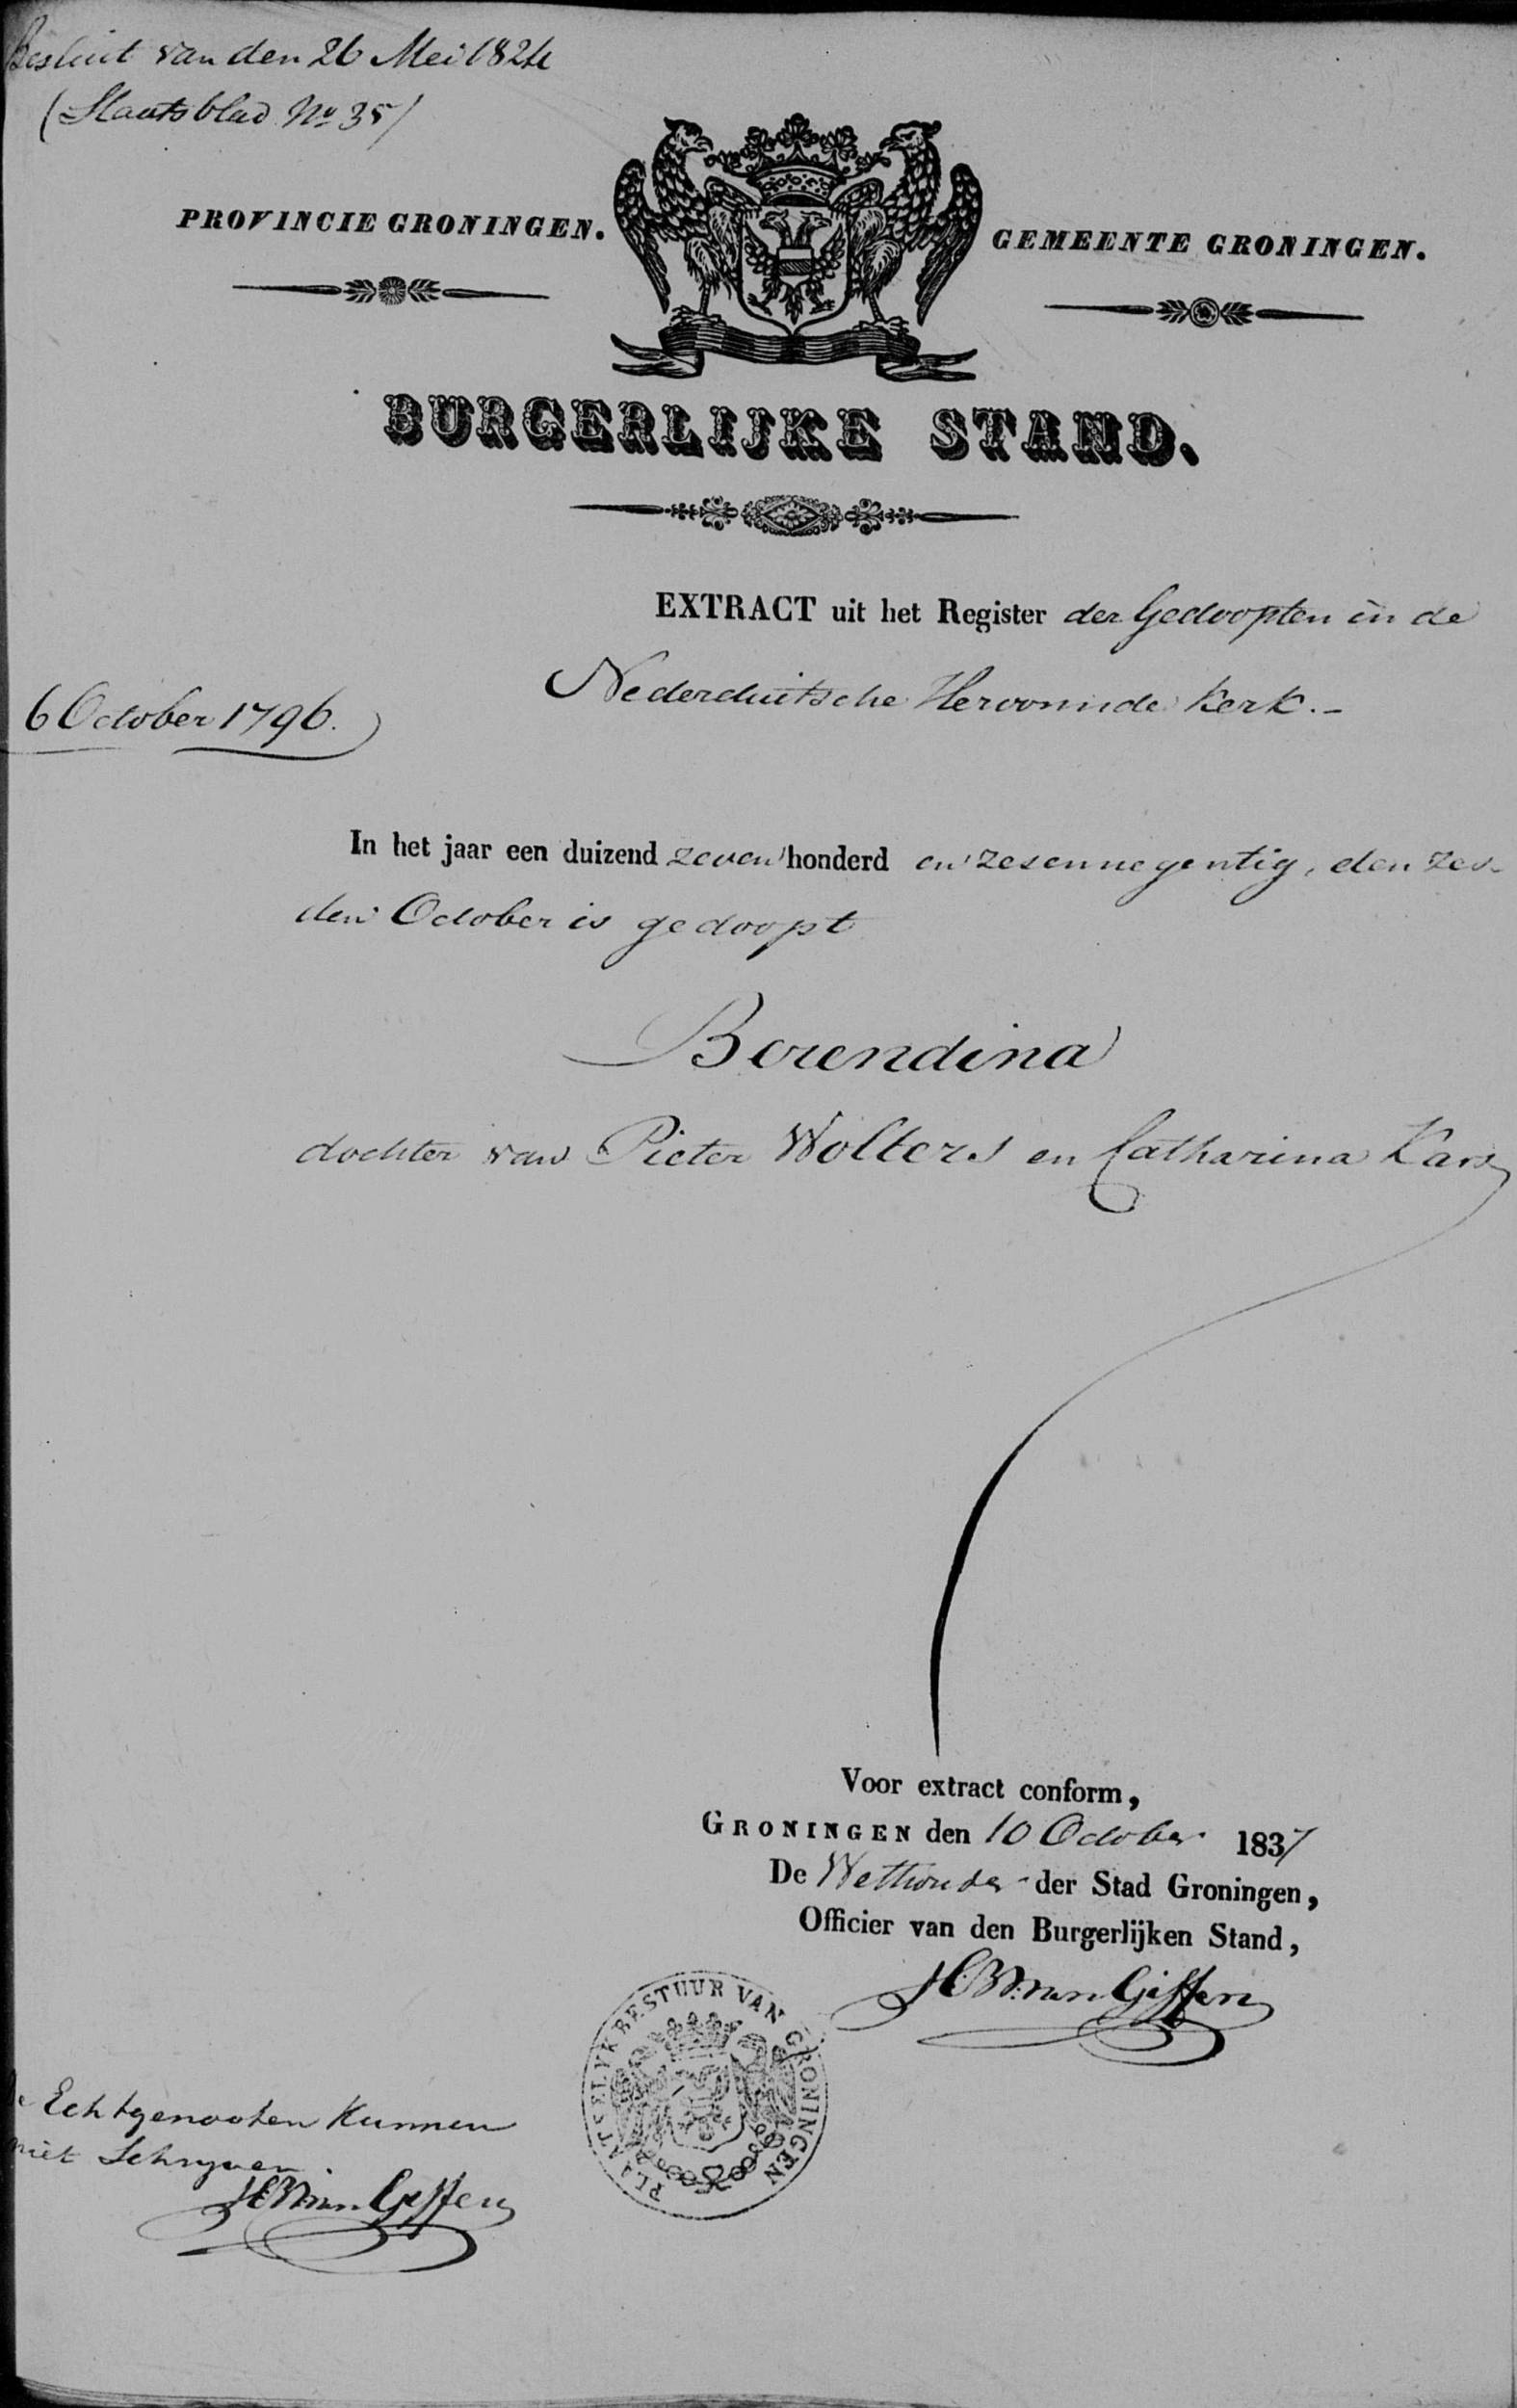 Besluit van den 26 Mei 1824
(Staatsblad No 35)
PROVINCIE GRONINGEN.
GEMEENTE GRONINGEN.
BURGERLIJKE STAND.
EXTRACT uit het Register der Gedoopten in de
Nederduitsche Hervormde Kerk.-
6 October 1796.
In het jaar een duizend zeven honderd en zesennegentig, den zes-
den October is gedoopt
Berendina
dochter van Pieter Wolters en Catharina Kars
Voor extract conform,
GRONINGEN den 10 October 1837
De Wethouder der Stad Groningen,
Officier van den Burgerlijken Stand,
van Giffen
PLAATSELYK BESTUUR VAN GRONINGEN
De Echtgenooten Kunnen
niet Schryven.
van Giffen